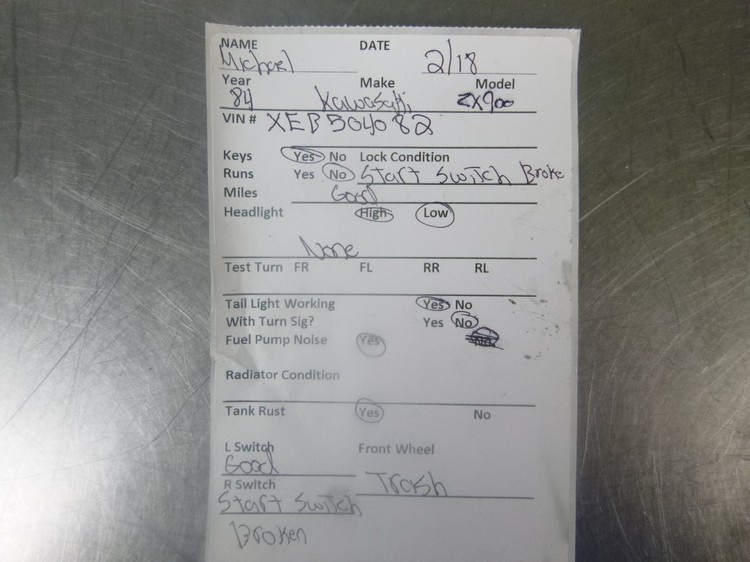 NAME DATE
Michael 2/18
Year Make Model
84 Kawasaki ZX900
VIN # XEB504082
Keys Yes No Lock Condition
Runs Yes No Start Switch Broke
Miles Good
Headlight High Low
None
Test Turn FR FL RR RL
Tail Light Working Yes No
With Turn Sig? Yes No
Fuel Pump Noise Yes
Radiator Condition
Tank Rust Yes No
L Switch Front Wheel
Good
R Switch Trash
Start Switch
Broken